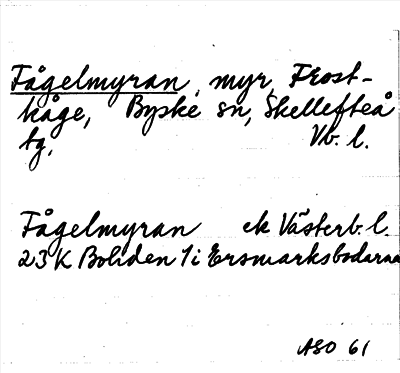 Fågelmyran, myr, Frost-
kåge, Byske sn, Skellefteå
tg, Vb. l.
Fågelmyran ek Västerb. l.
23 K Boliden 1i Ersmarksbodarna
ASO 61